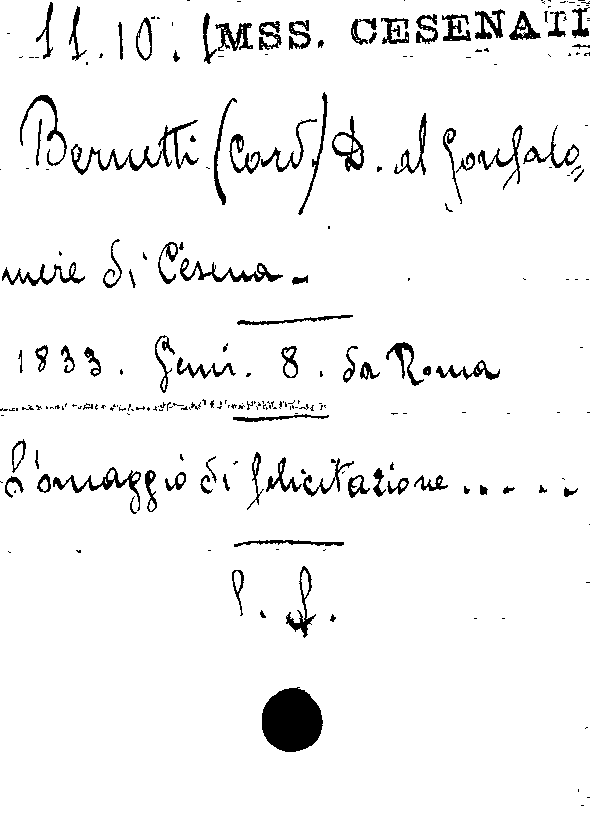 11.10. MSS. CESENATI
Bernetti (Card.) D. al Gonfalo=
niere di Cesena -
1833. Genn. 8. da Roma
L'omaggio di felicitazione .....
l. f.